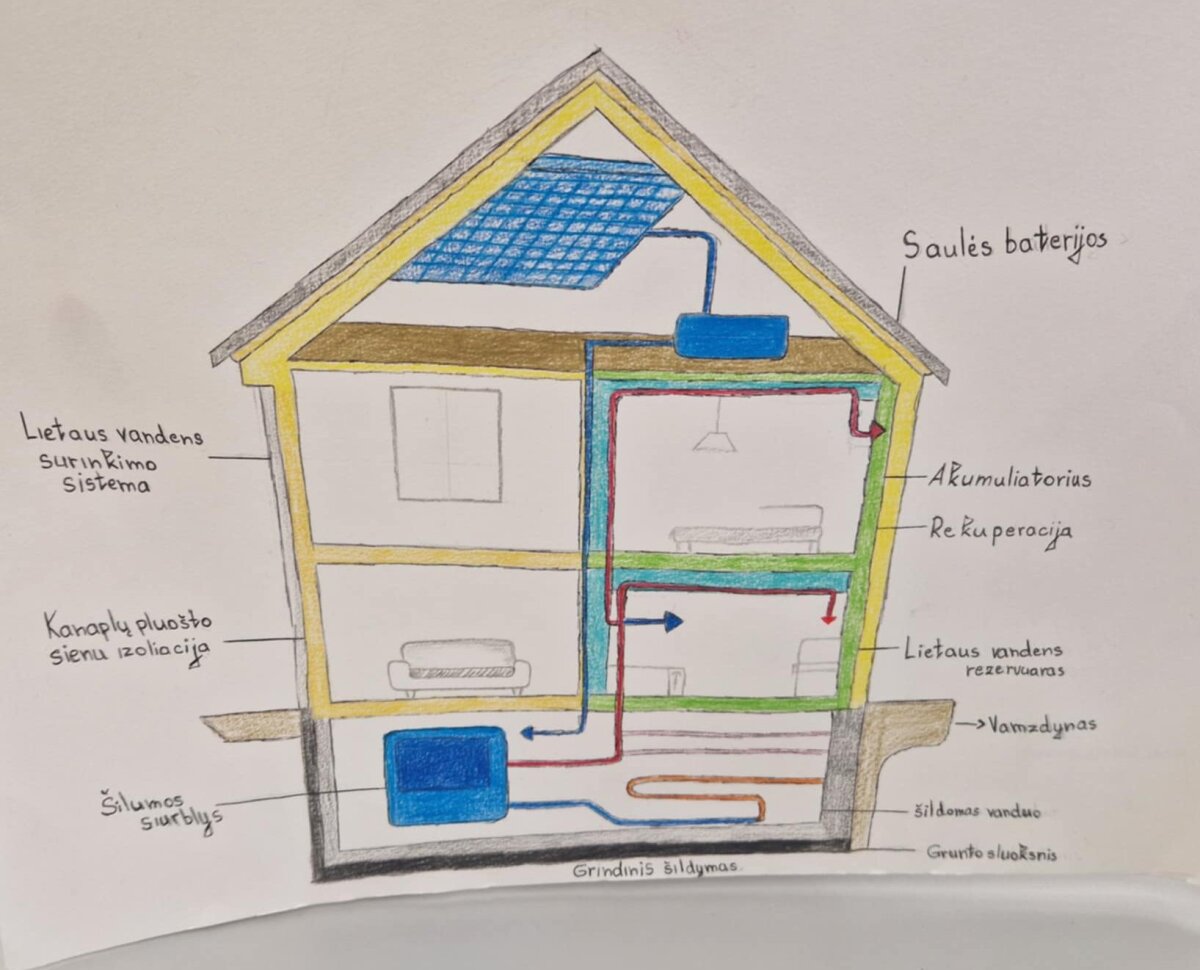 Saulės baterijos
Lietaus vandens
surinkimo
sistema
Akumuliatorius
Rekuperacija
Kanaplų pluošto
sienu izoliacija
Lietaus vandens
rezervuaras
Vamzdynas
Šilumos
siurblys
šildomas vanduo
Grunto sluoksnis
Grindinis šildymas.